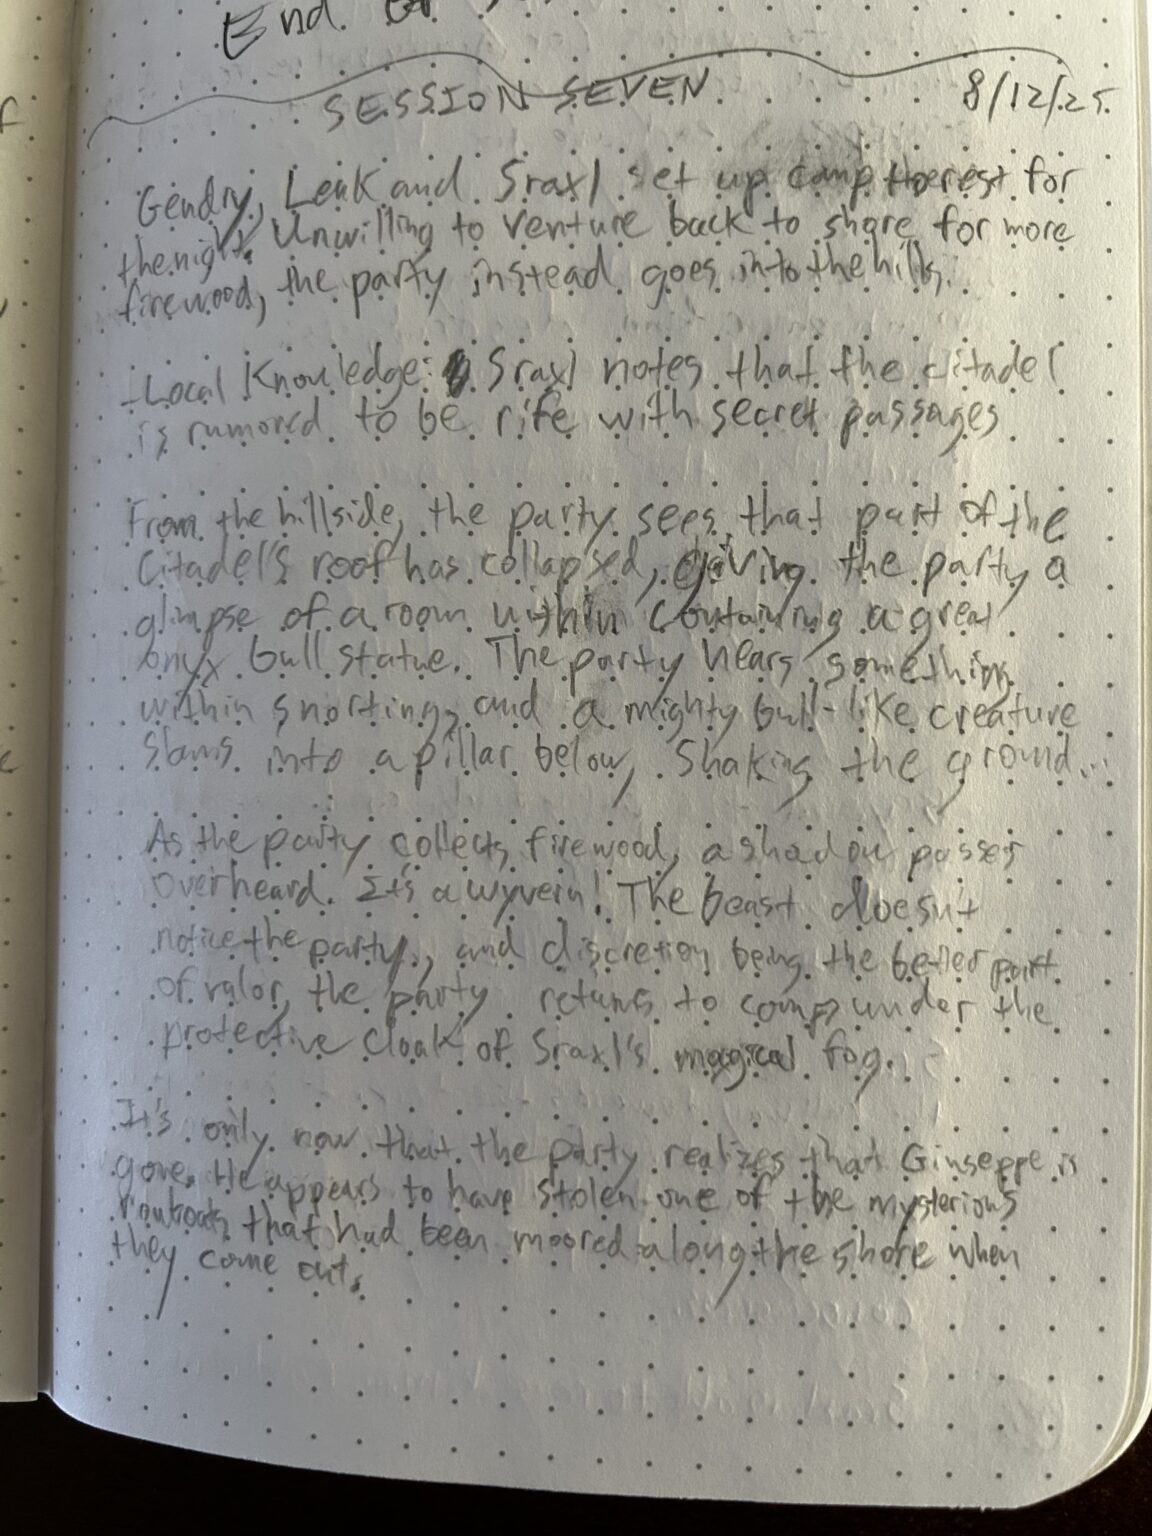 End of
SESSION SEVEN 8/12/25
Gendry, Leak and Sraxl set up camp to rest for
the night. Unwilling to venture back to shore for more
firewood, the party instead goes into the hills.
- Local Knowledge: Sraxl notes that the citadel
is rumored to be rife with secret passages
From the hillside, the party sees that part of the
Citadel's roof has collapsed, giving the party a
glimpse of a room within containing a great
onyx bull statue. The party hears something
within snorting, and a mighty bull-like creature
slams into a pillar below, shaking the ground...
As the party collects firewood, a shadow passes
overheard. It's a wyvern! The beast doesn't
notice the party, and discretion being the better part
of valor, the party returns to camp under the
protective cloak of Sraxl's magical fog.
It's only now that the party realizes that Giuseppe is
gone. He appears to have stolen one of the mysterious
rowboats that had been moored along the shore when
they come out.